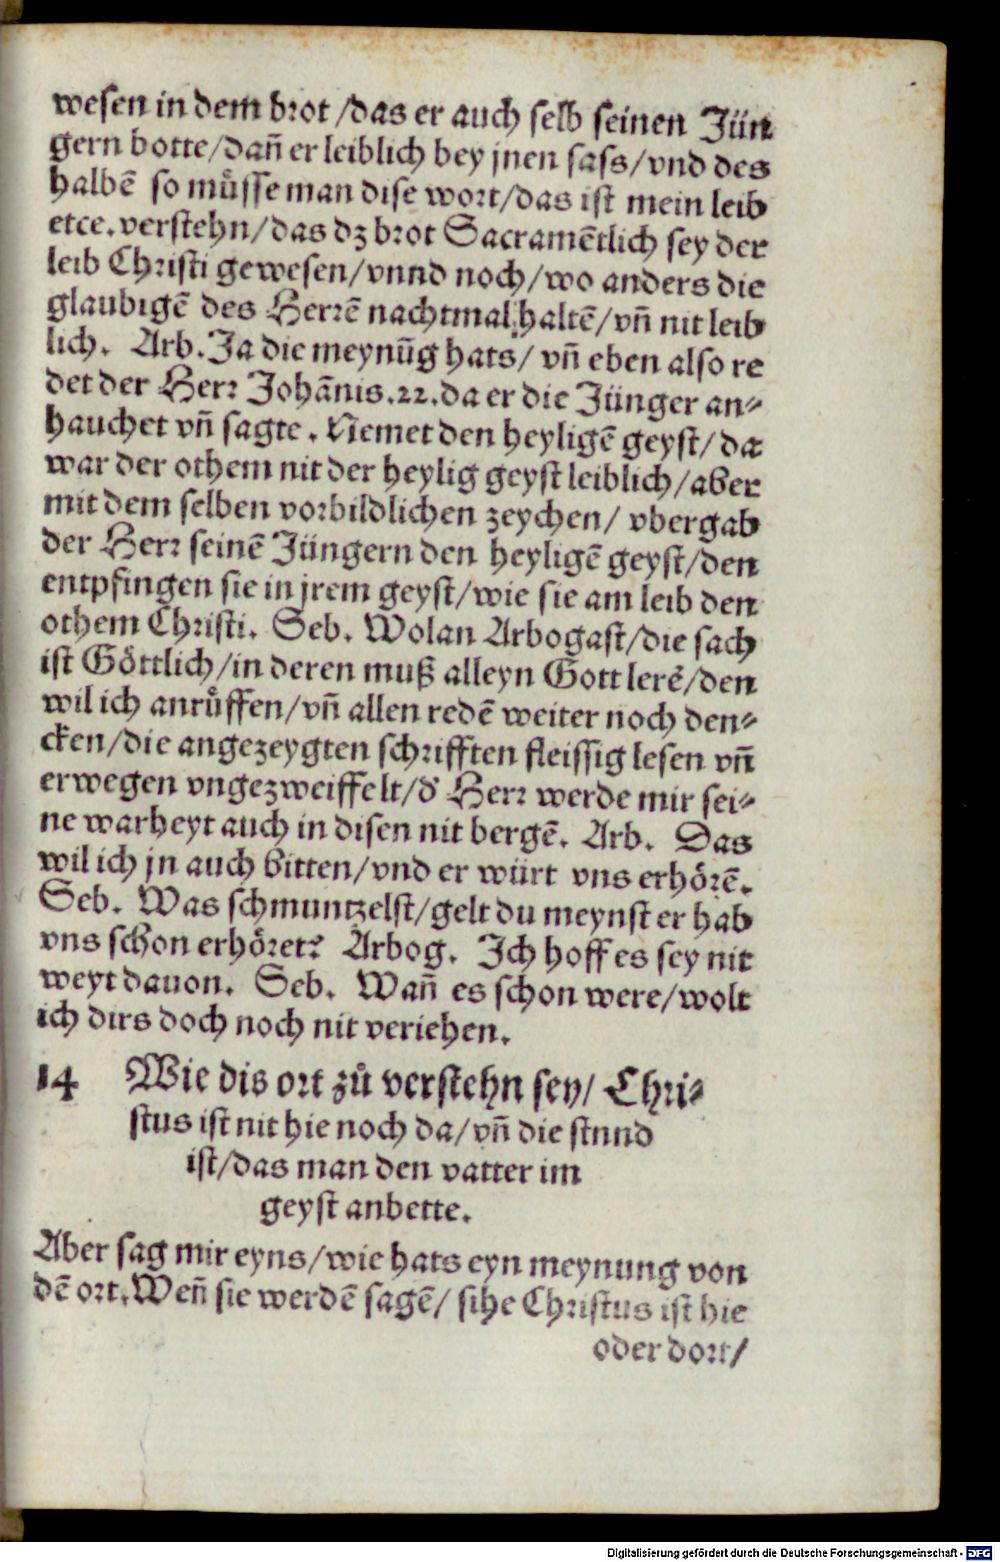 wesen in dem brot /das er auch selb seinen Jün
gern botte/dañ er leiblich bey jnen sass/vnd des
halbē so můsse man dise wort/das ist mein leib
etce.verstehn/das dz brot Sacramētlich sey der
leib Christi gewesen/vnnd noch/wo anders die
glaubigē des Herrē nachtmal haltē/vñ nit leib
lich. Arb. Ja die meynūg hats/ vñ eben also re
det der Herr Johānis.22.da er die Jünger an⸗
hauchet vñ sagte. Nemet den heyligē geyst/ da
war der othem nit der heylig geyst leiblich/aber
mit dem selben vorbildlichen zeychen/ vbergab
der Herr seinē Jüngern den heyligē geyst/den
entpfingen sie in jrem geyst/wie sie am leib den
othem Christi. Seb. Wolan Arbogast/die sach
ist Göttlich/in deren muß alleyn Gott lerē/den
wil ich anrůffen/vñ allen redē weiter noch den⸗
cken/die angezeygten schrifften fleissig lesen vñ
erwegen vngezweiffelt/d' Herr werde mir sei⸗
ne warheyt auch in disen nit bergē. Arb. Das
wil ich jn auch bitten/vnd er würt vns erhörē.
Seb. Was schmuntzelst/gelt du meynst er hab
vns schon erhöret? Arbog. Ich hoff es sey nit
weyt dauon. Seb. Wañ es schon were/wolt
ich dirs doch noch nit veriehen.
14 Wie dis ort zů verstehn sey/ Chri⸗
stus ist nit hie noch da/vñ die stnnd
ist/das man den vatter im
geyst anbette.
Aber sag mir eyns/wie hats eyn meynung von
dē ort.Weñ sie werdē sagē/ sihe Christus ist hie
oder dort/
Digitalisierung gefördert durch die Deutsche Forschungsgemeinschaft - DFG